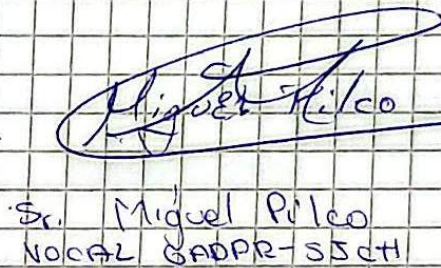 Miguel Pilco
Sr. Miguel Pilco
VOCAL GADPR-SJCH